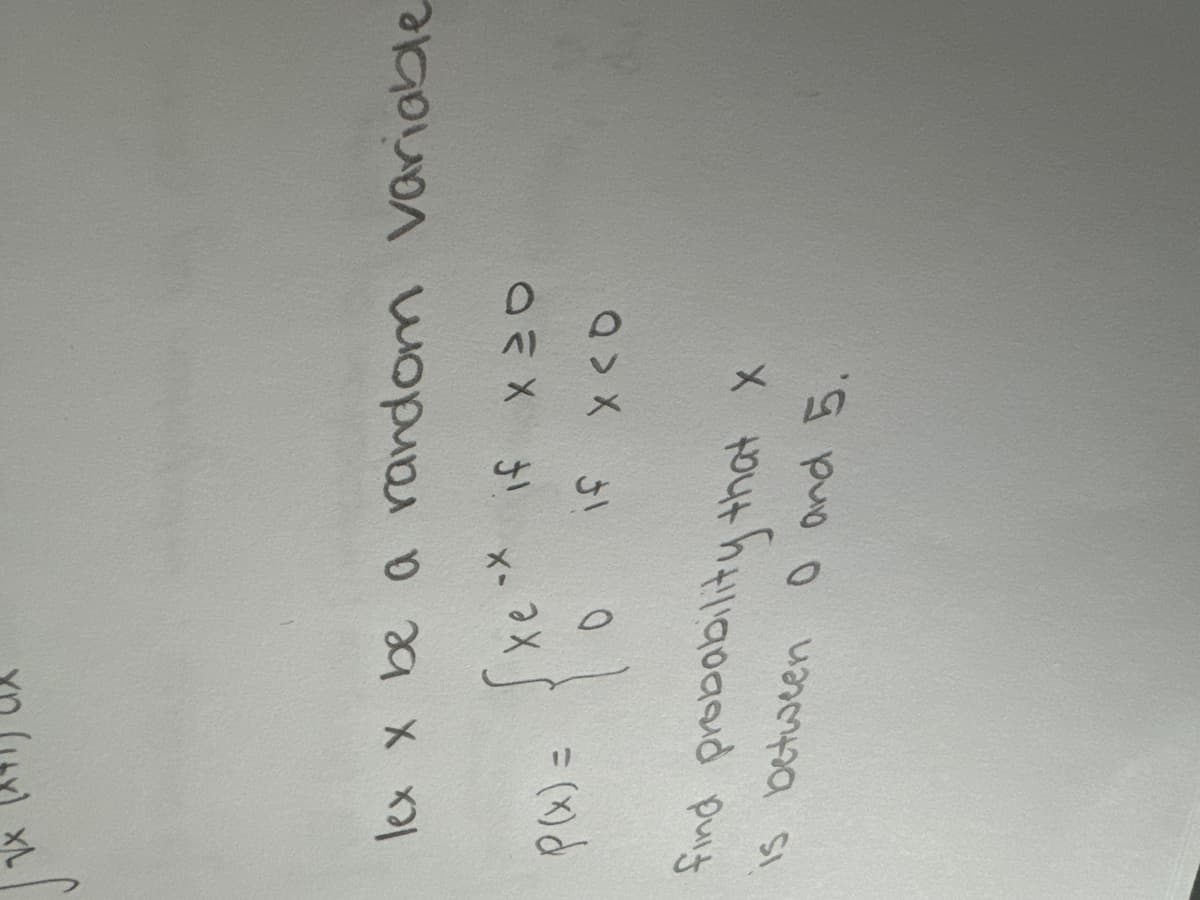 ∫ √x (x+1) dx
lex x be a random variable
p(x) = { xe^-x if x ≥ 0
0 if x < 0
find probability that x
is between 0 and 5.